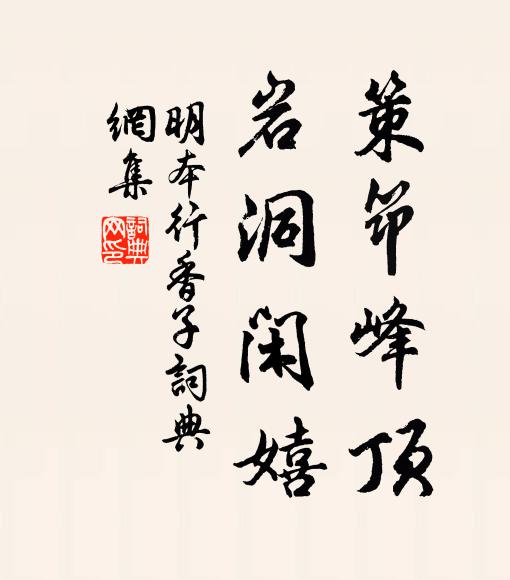 策筇峰頂
岩洞閑嬉
明本行香子詞典
網集
詞典
网印